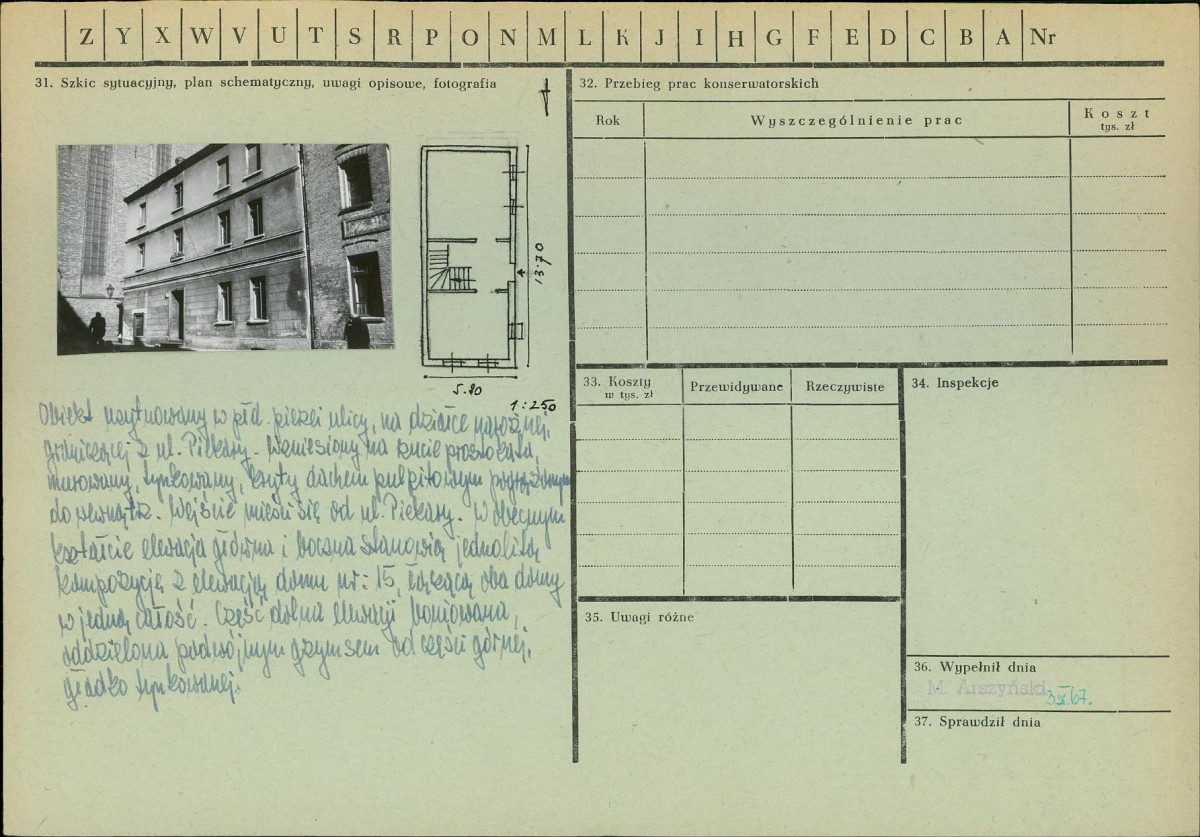 Z Y X W V U T S R P O N M L K J I H G F E D C B A Nr
31. Szkic sytuacyjny, plan schematyczny, uwagi opisowe, fotografia
13.70
5.20
1:250
Obiekt usytuowany w płd. pierzei ulicy, na działce narożnej,
graniczącej z ul. Piekary. Wzniesiony na rzucie prostokąta,
murowany, tynkowany, kryty dachem pulpitowym pogrążonym
do wewnątrz. Wejście mieści się od ul. Piekary. W obecnym
kształcie elewacja główna i boczna stanowią jednolitą
kompozycję z elewacją domu nr: 15, łączącą oba domy
w jedną całość. Część dolna elewacji boniowana,
oddzielona podwójnym gzymsem od części górnej,
gładko tynkowanej.
32. Przebieg prac konserwatorskich
Rok Wyszczególnienie prac Koszt
tys. zł
33. Koszty Przewidywane Rzeczywiste
w tys. zł
34. Inspekcje
35. Uwagi różne
36. Wypełnił dnia
M. Arszyński 3 X 67.
37. Sprawdził dnia